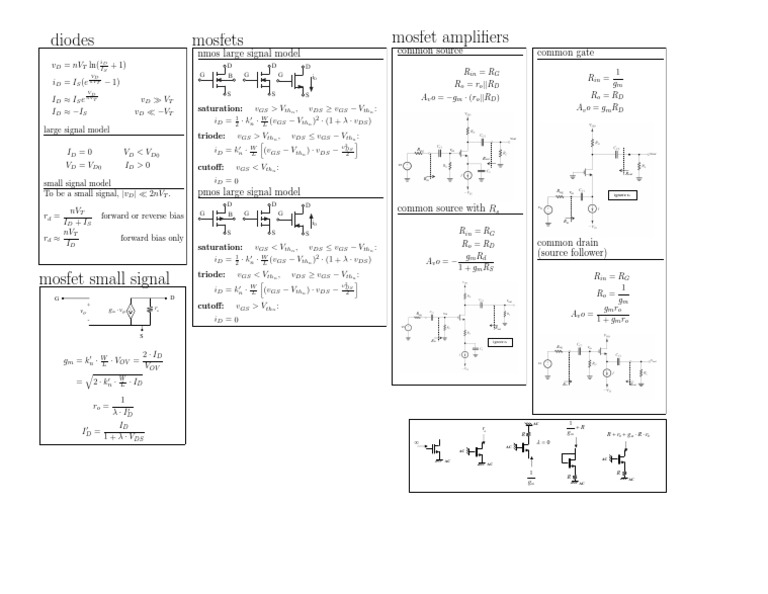 diodes
v_D = nV_T ln(i_D/I_S + 1)
i_D = I_S(e^{v_D/nV_T} − 1)
I_D ≈ I_S e^{v_D/nV_T} v_D ≫ V_T
I_D ≈ −I_S v_D ≪ −V_T
large signal model
I_D = 0 V_D < V_{D0}
V_D = V_{D0} I_D > 0
small signal model
To be a small signal, |v_D| ≪ 2nV_T.
r_d = nV_T/(I_D + I_S) forward or reverse bias
r_d ≈ nV_T/I_D forward bias only
mosfet small signal
G D
S
g_m = k′_n · W/L · V_{OV} = 2 · I_D/V_{OV}
= √(2 · k′_n · W/L · I_D)
r_o = 1/(λ · I′_D)
I′_D = I_D/(1 + λ · V_{DS})
mosfets
nmos large signal model
D D D
G B G G
S S S
saturation: v_{GS} > V_{th_n}, v_{DS} ≥ v_{GS} − V_{th_n}:
i_D = 1/2 · k′_n · W/L (v_{GS} − V_{th_n})² · (1 + λ · v_{DS})
triode: v_{GS} > V_{th_n}, v_{DS} ≤ v_{GS} − V_{th_n}:
i_D = k′_n · W/L [(v_{GS} − V_{th_n}) · v_{DS} − v²_{DS}/2]
cutoff: v_{GS} < V_{th_n}:
i_D = 0
pmos large signal model
D D D
G B G G
S S S
saturation: v_{GS} < V_{th_n}, v_{DS} ≤ v_{GS} − V_{th_n}:
i_D = 1/2 · k′_n · W/L (v_{GS} − V_{th_n})² · (1 + λ · v_{DS})
triode: v_{GS} < V_{th_n}, v_{DS} ≥ v_{GS} − V_{th_n}:
i_D = k′_n · W/L [(v_{GS} − V_{th_n}) · v_{DS} − v²_{DS}/2]
cutoff: v_{GS} > V_{th_n}:
i_D = 0
mosfet amplifiers
common source
R_{in} = R_G
R_o = r_o||R_D
A_vo = −g_m · (r_o||R_D)
common source with R_s
R_{in} = R_G
R_o = R_D
A_vo = − g_m R_d/(1 + g_m R_S)
common gate
R_{in} = 1/g_m
R_o = R_D
A_vo = g_m R_D
common drain
(source follower)
R_{in} = R_G
R_o = 1/g_m
A_vo = g_m r_o/(1 + g_m r_o)